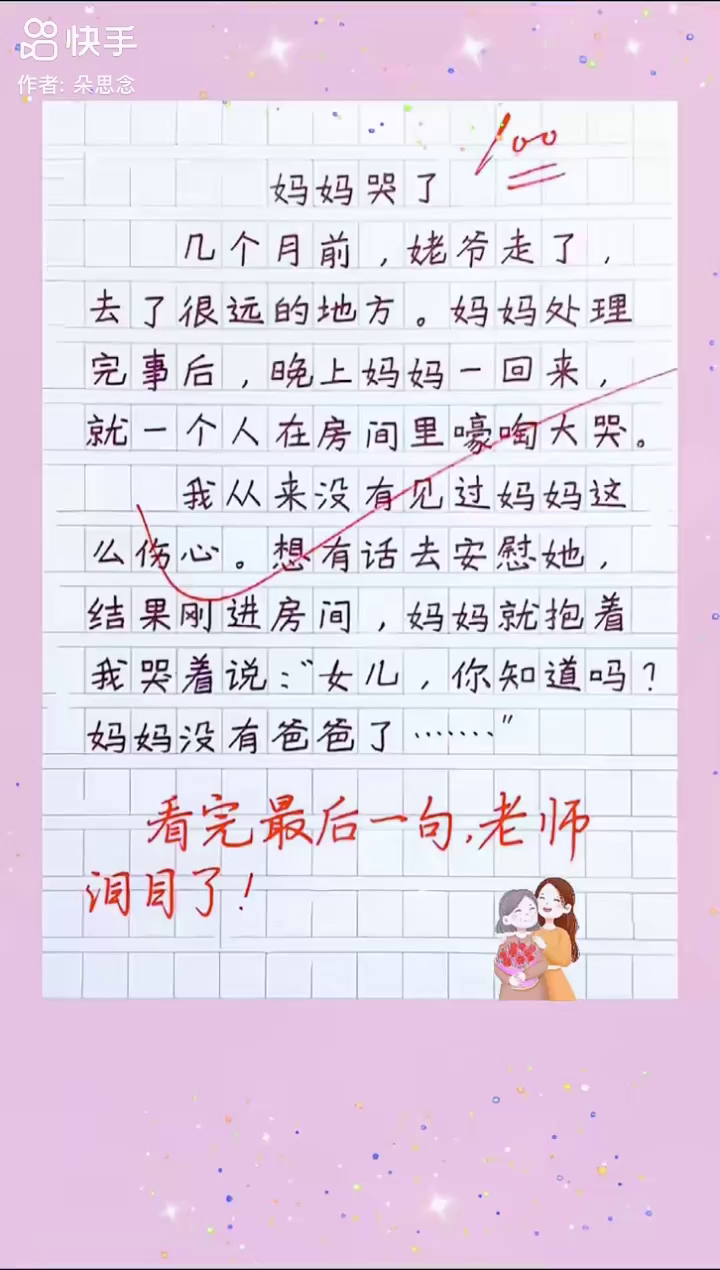 快手
作者: 朵思念
100
妈妈哭了
几个月前，姥爷走了，
去了很远的地方。妈妈处理
完事后，晚上妈妈一回来，
就一个人在房间里嚎啕大哭。
我从来没有见过妈妈这
么伤心。想有话去安慰她，
结果刚进房间，妈妈就抱着
我哭着说：“女儿，你知道吗？
妈妈没有爸爸了……”
看完最后一句，老师
泪目了！